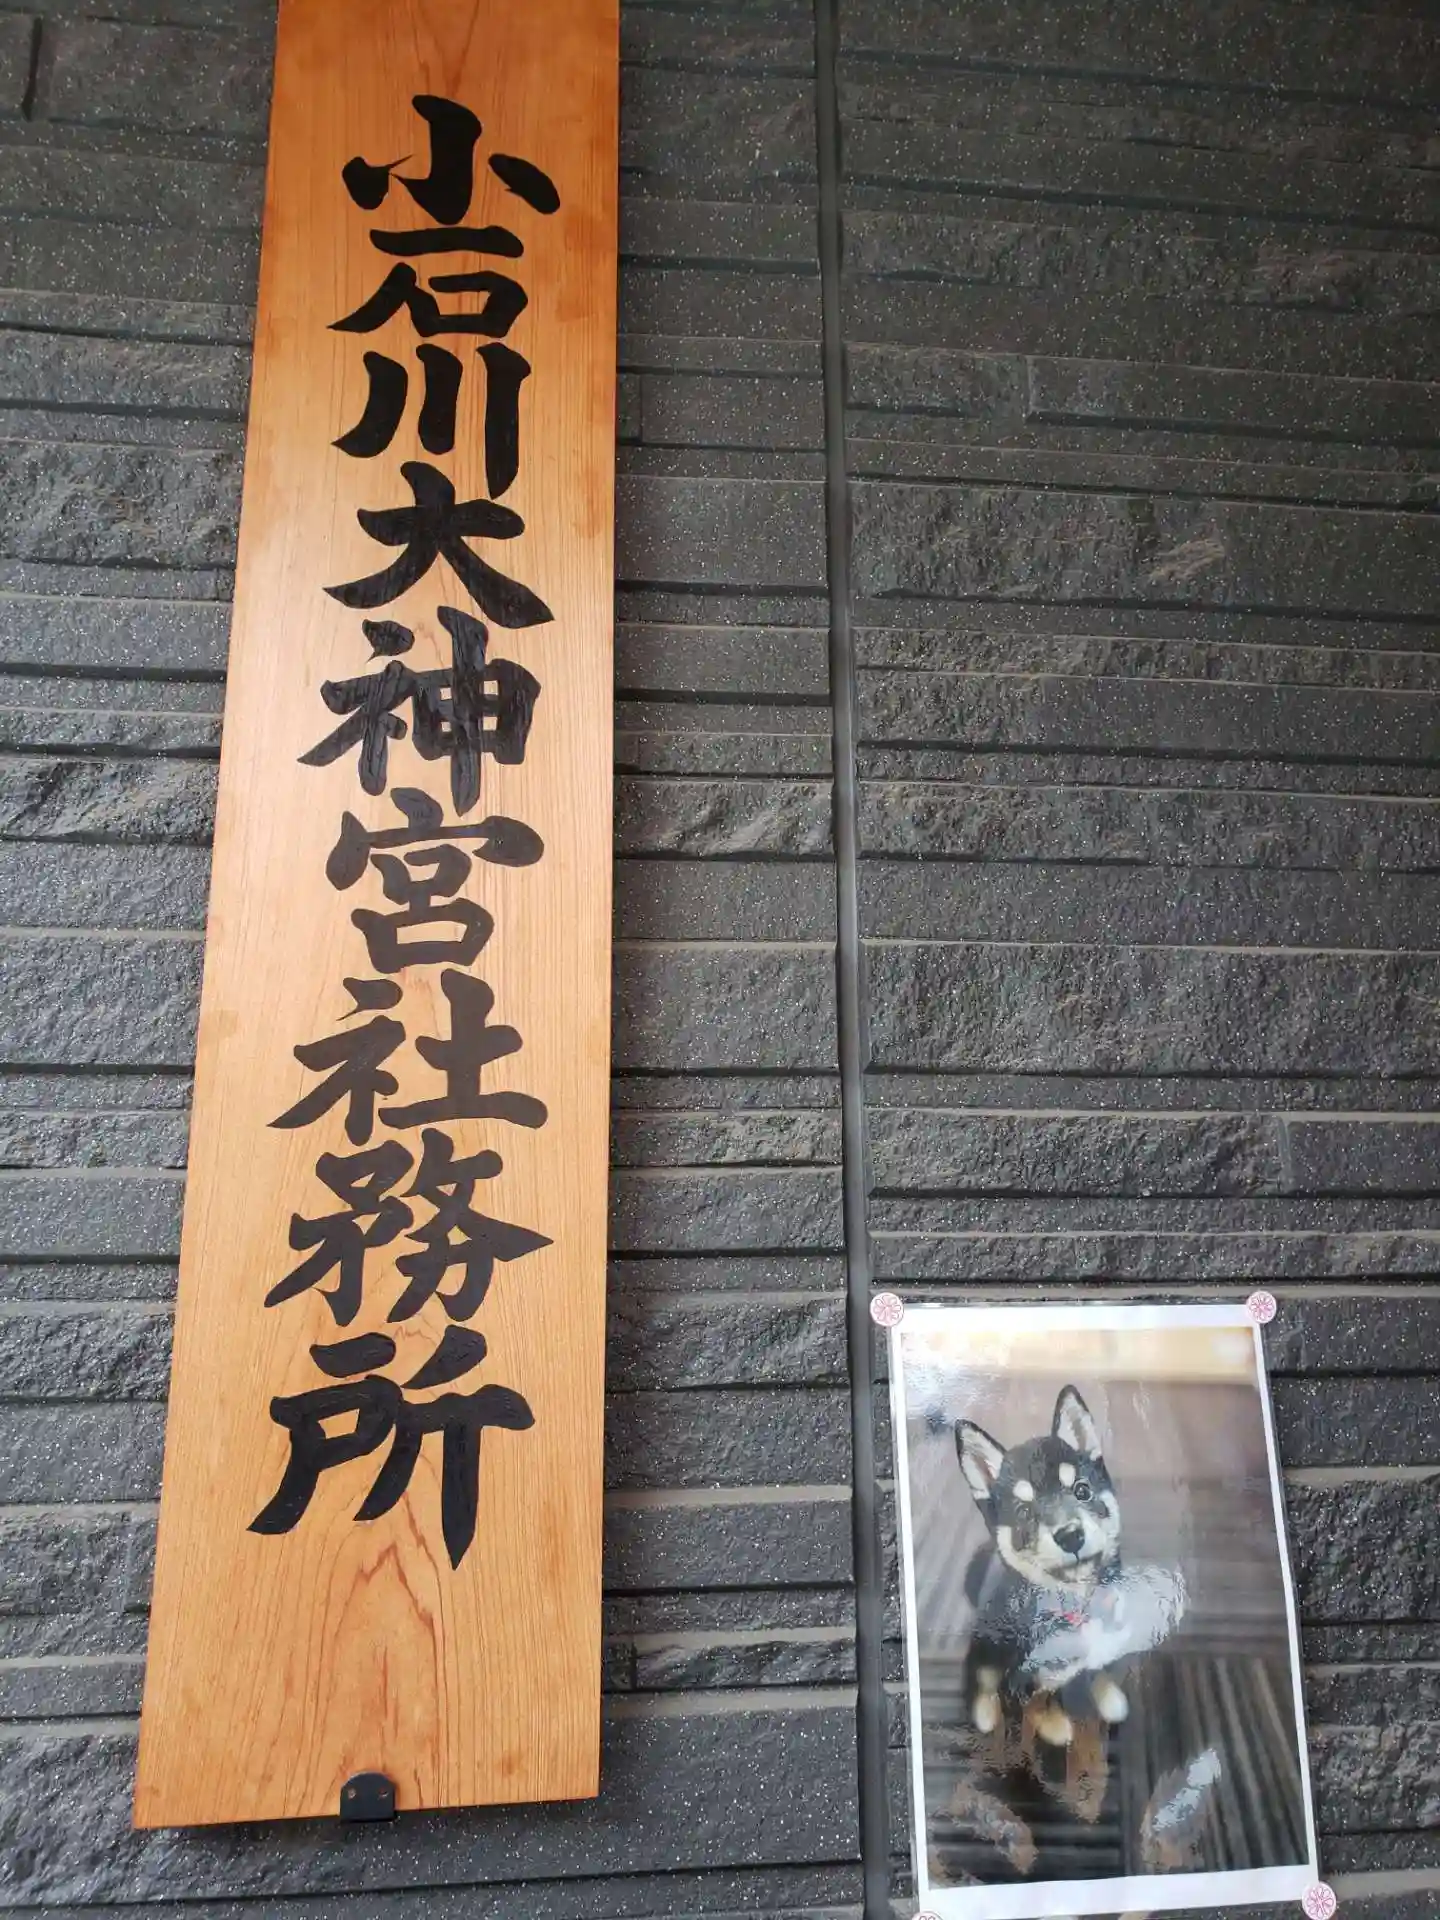 小石川大神宮社務所